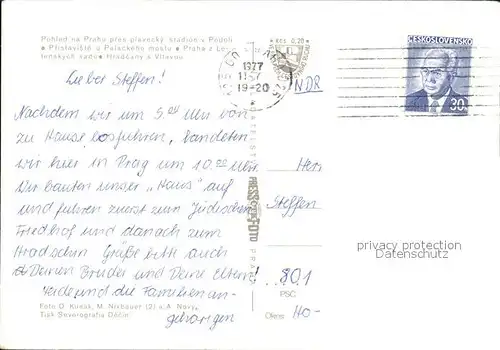 Pohled na Prahu přes plavecký stadión v Podolí
• Přístaviště u Palackého mostu • Praha z Le-
tenských sadů • Hradčany s Vltavou
Kčs 0,20
ČESKOSLOVENSKO
30
1977
19-20
NDR
Lieber Steffen!
Nachdem wir um 5.00 Uhr von
zu Hause losfuhren, landeten
wir hier in Prag um 10.00 Uhr.
Wir bauten unser „Haus" auf
und fuhren zuerst zum Jüdischen
Friedhof und danach zum
Hradschin. Grüße bitte auch
Deinen Bruder und Deine Eltern!
Heide und die Familienan-
gehörigen
PRESSFOTO
Herr
Steffen
801
PSČ
Okres Ho-
privacy protection
Datenschutz
Foto O. Karásk, M. Nixbauer (2) a A. Nový
Tisk Severografia Děčín